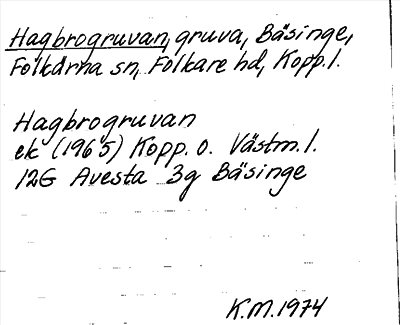 Hagbrogruvan, gruva, Bäsinge,
Folkärna sn, Folkare hd, Kopp. l.
Hagbrogruvan
ek (1965) Kopp. o. Västm. l.
12G Avesta 3g Bäsinge
K.M. 1974